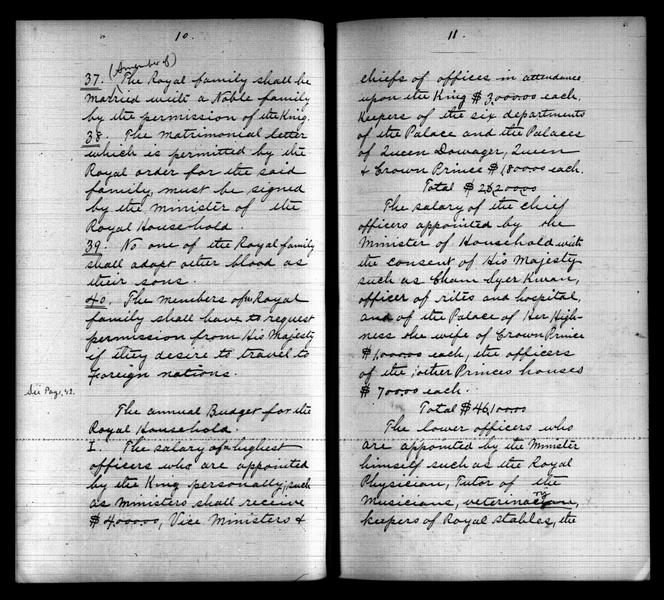 10.
(A member of)
37. The Royal family shall be
married with a Noble family
by the permission of the King.
38. The matrimonial letter
which is permitted by the
Royal order for the said
family, must be signed
by the minister of the
Royal Household.
39. No one of the Royal family
shall adopt other blood as
their sons.
40. The members of the Royal
family shall have to request
permission from His Majesty
if they desire to travel to
Foreign nations.
See Page, 42.
The annual Budget for the
Royal Household.
I. The salary of a highest
officers who are appointed
by the King personally, such
as Ministers shall receive
$ 4,000.00, Vice Ministers &
11.
chiefs of offices in attendance
upon the King $ 3,000.00 each.
Keepers of the six departments
of the Palace and the Palaces
of Queen Dowager, Queen
& Crown Prince $ 1,800.00 each.
Total $ 26,200.00
The salary of the chief
officers appointed by the
Minister of Household with
the consent of His Majesty
such as Cham Syer Kwan,
officer of rites and hospital,
and of the Palace of Her High-
ness the wife of Crown Prince
$ 1,000.00 each, the officers
of the other Princes houses
$ 700.00 each.
Total $ 46,100.00
The lower officers who
are appointed by the Minister
himself such as the Royal
Physician, Tutor of the
Musicians,
keepers of Royal stables, the